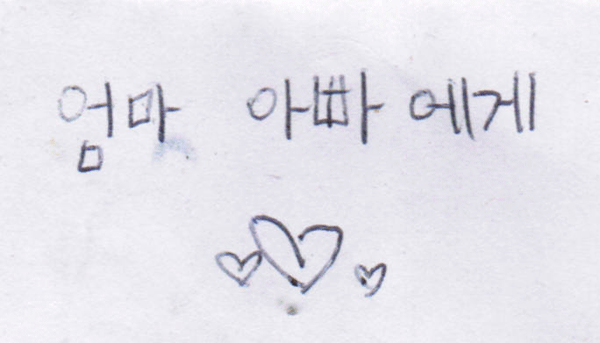 엄마 아빠에게